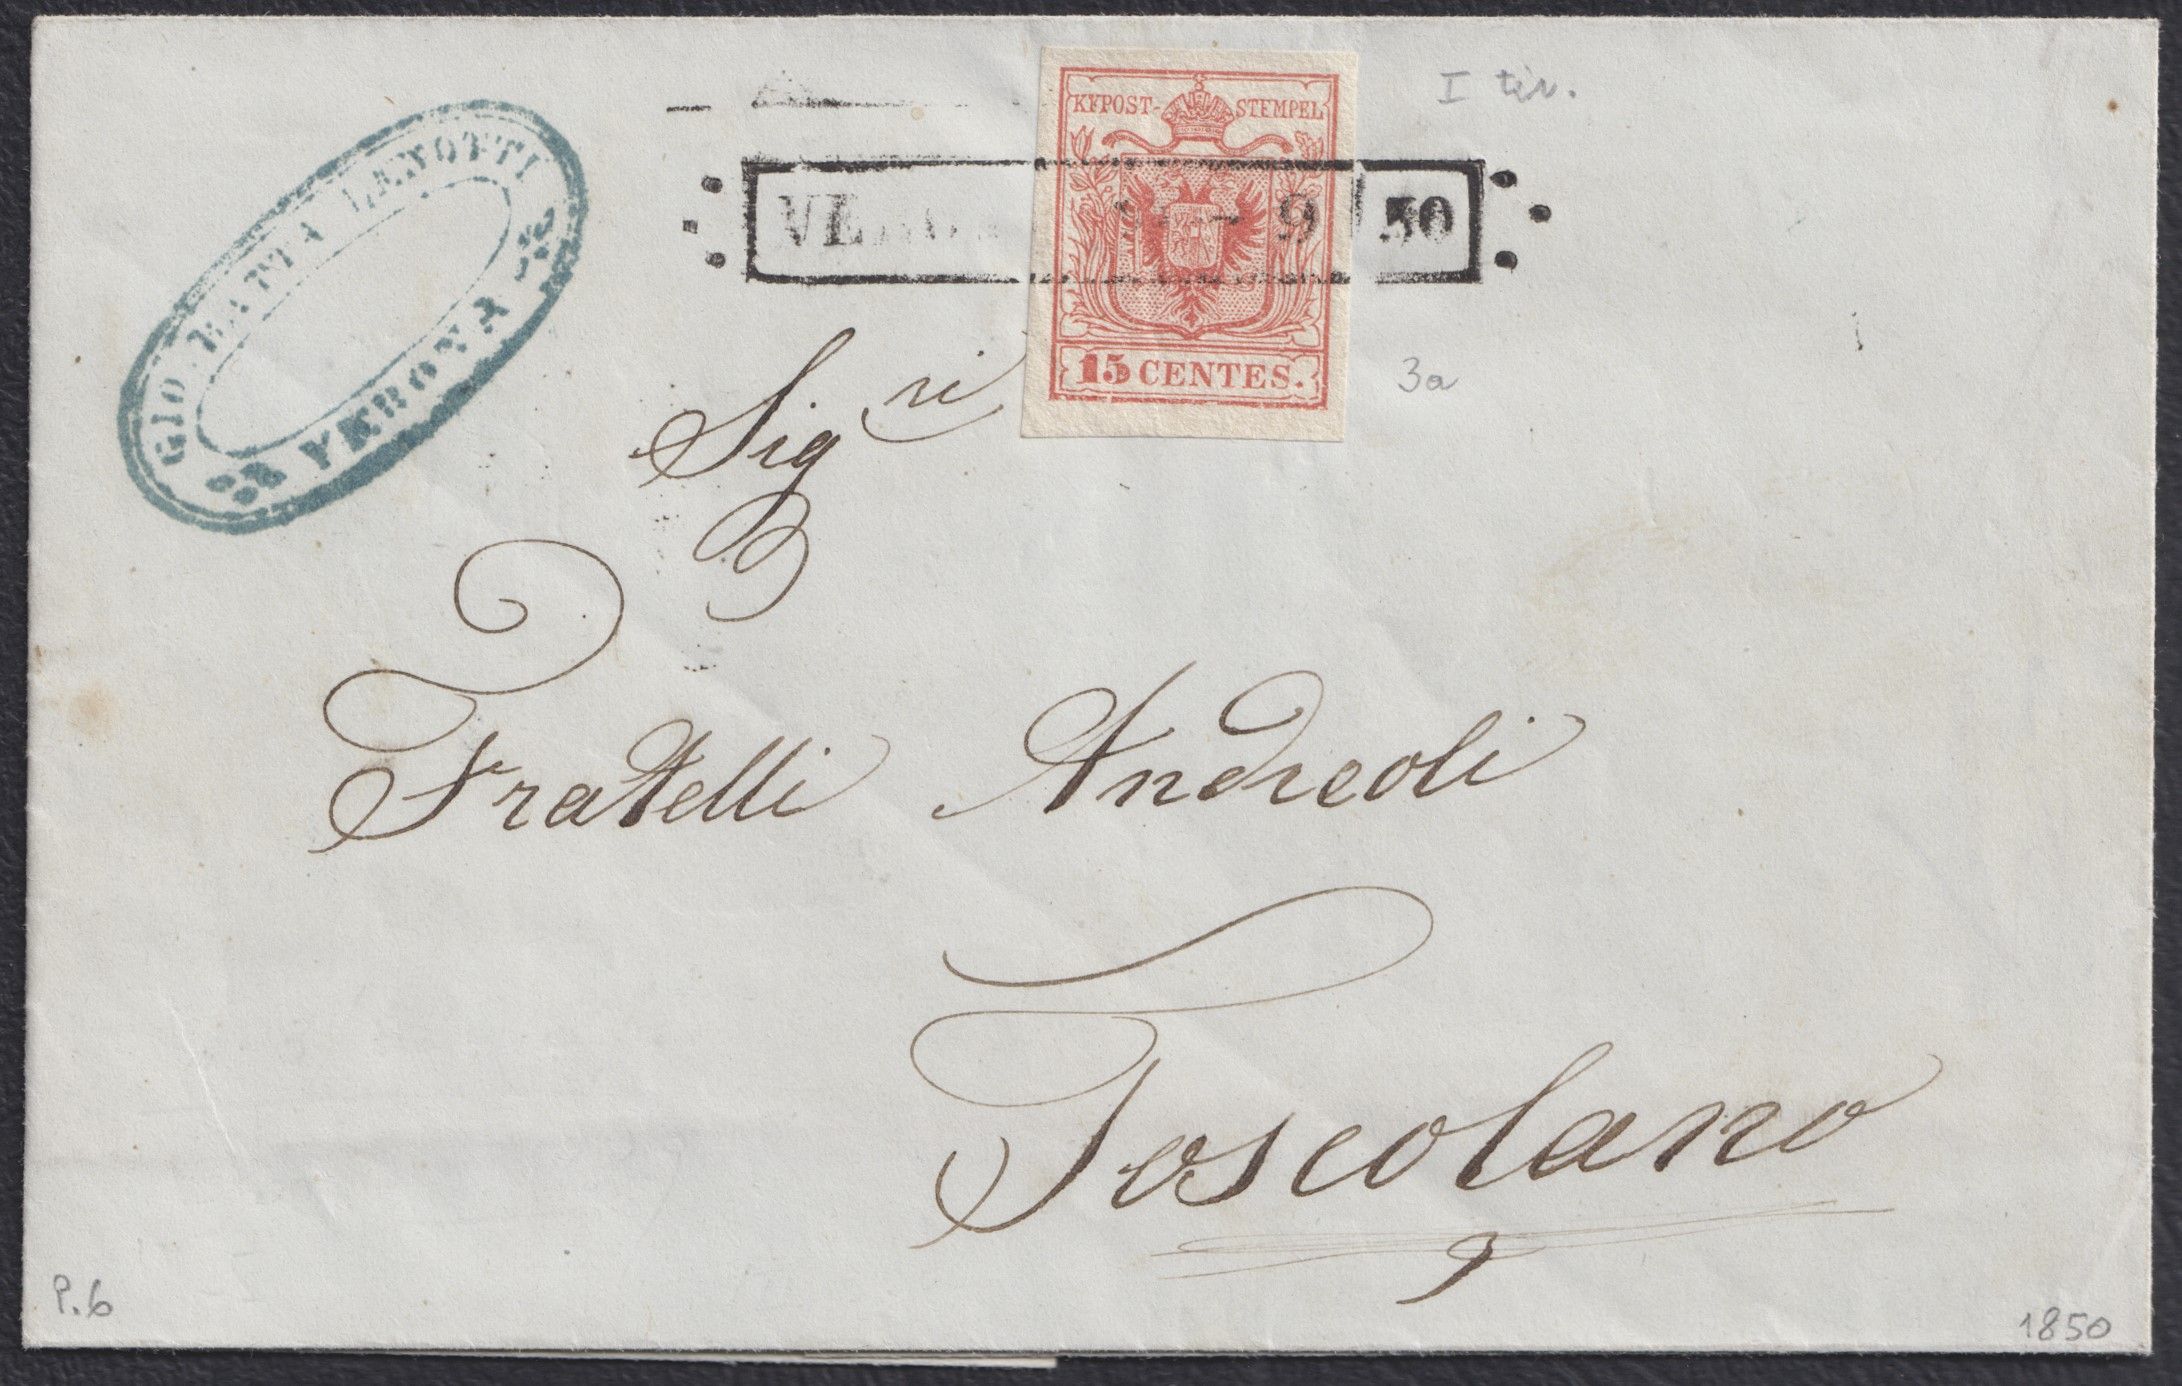 GIO. BATTA LENOTTI
VERONA
KKPOST-STEMPEL
I tir.
9 50
15 CENTES.
3a
Sig.ri
Fratelli Andreoli
Toscolano
P.6
1850